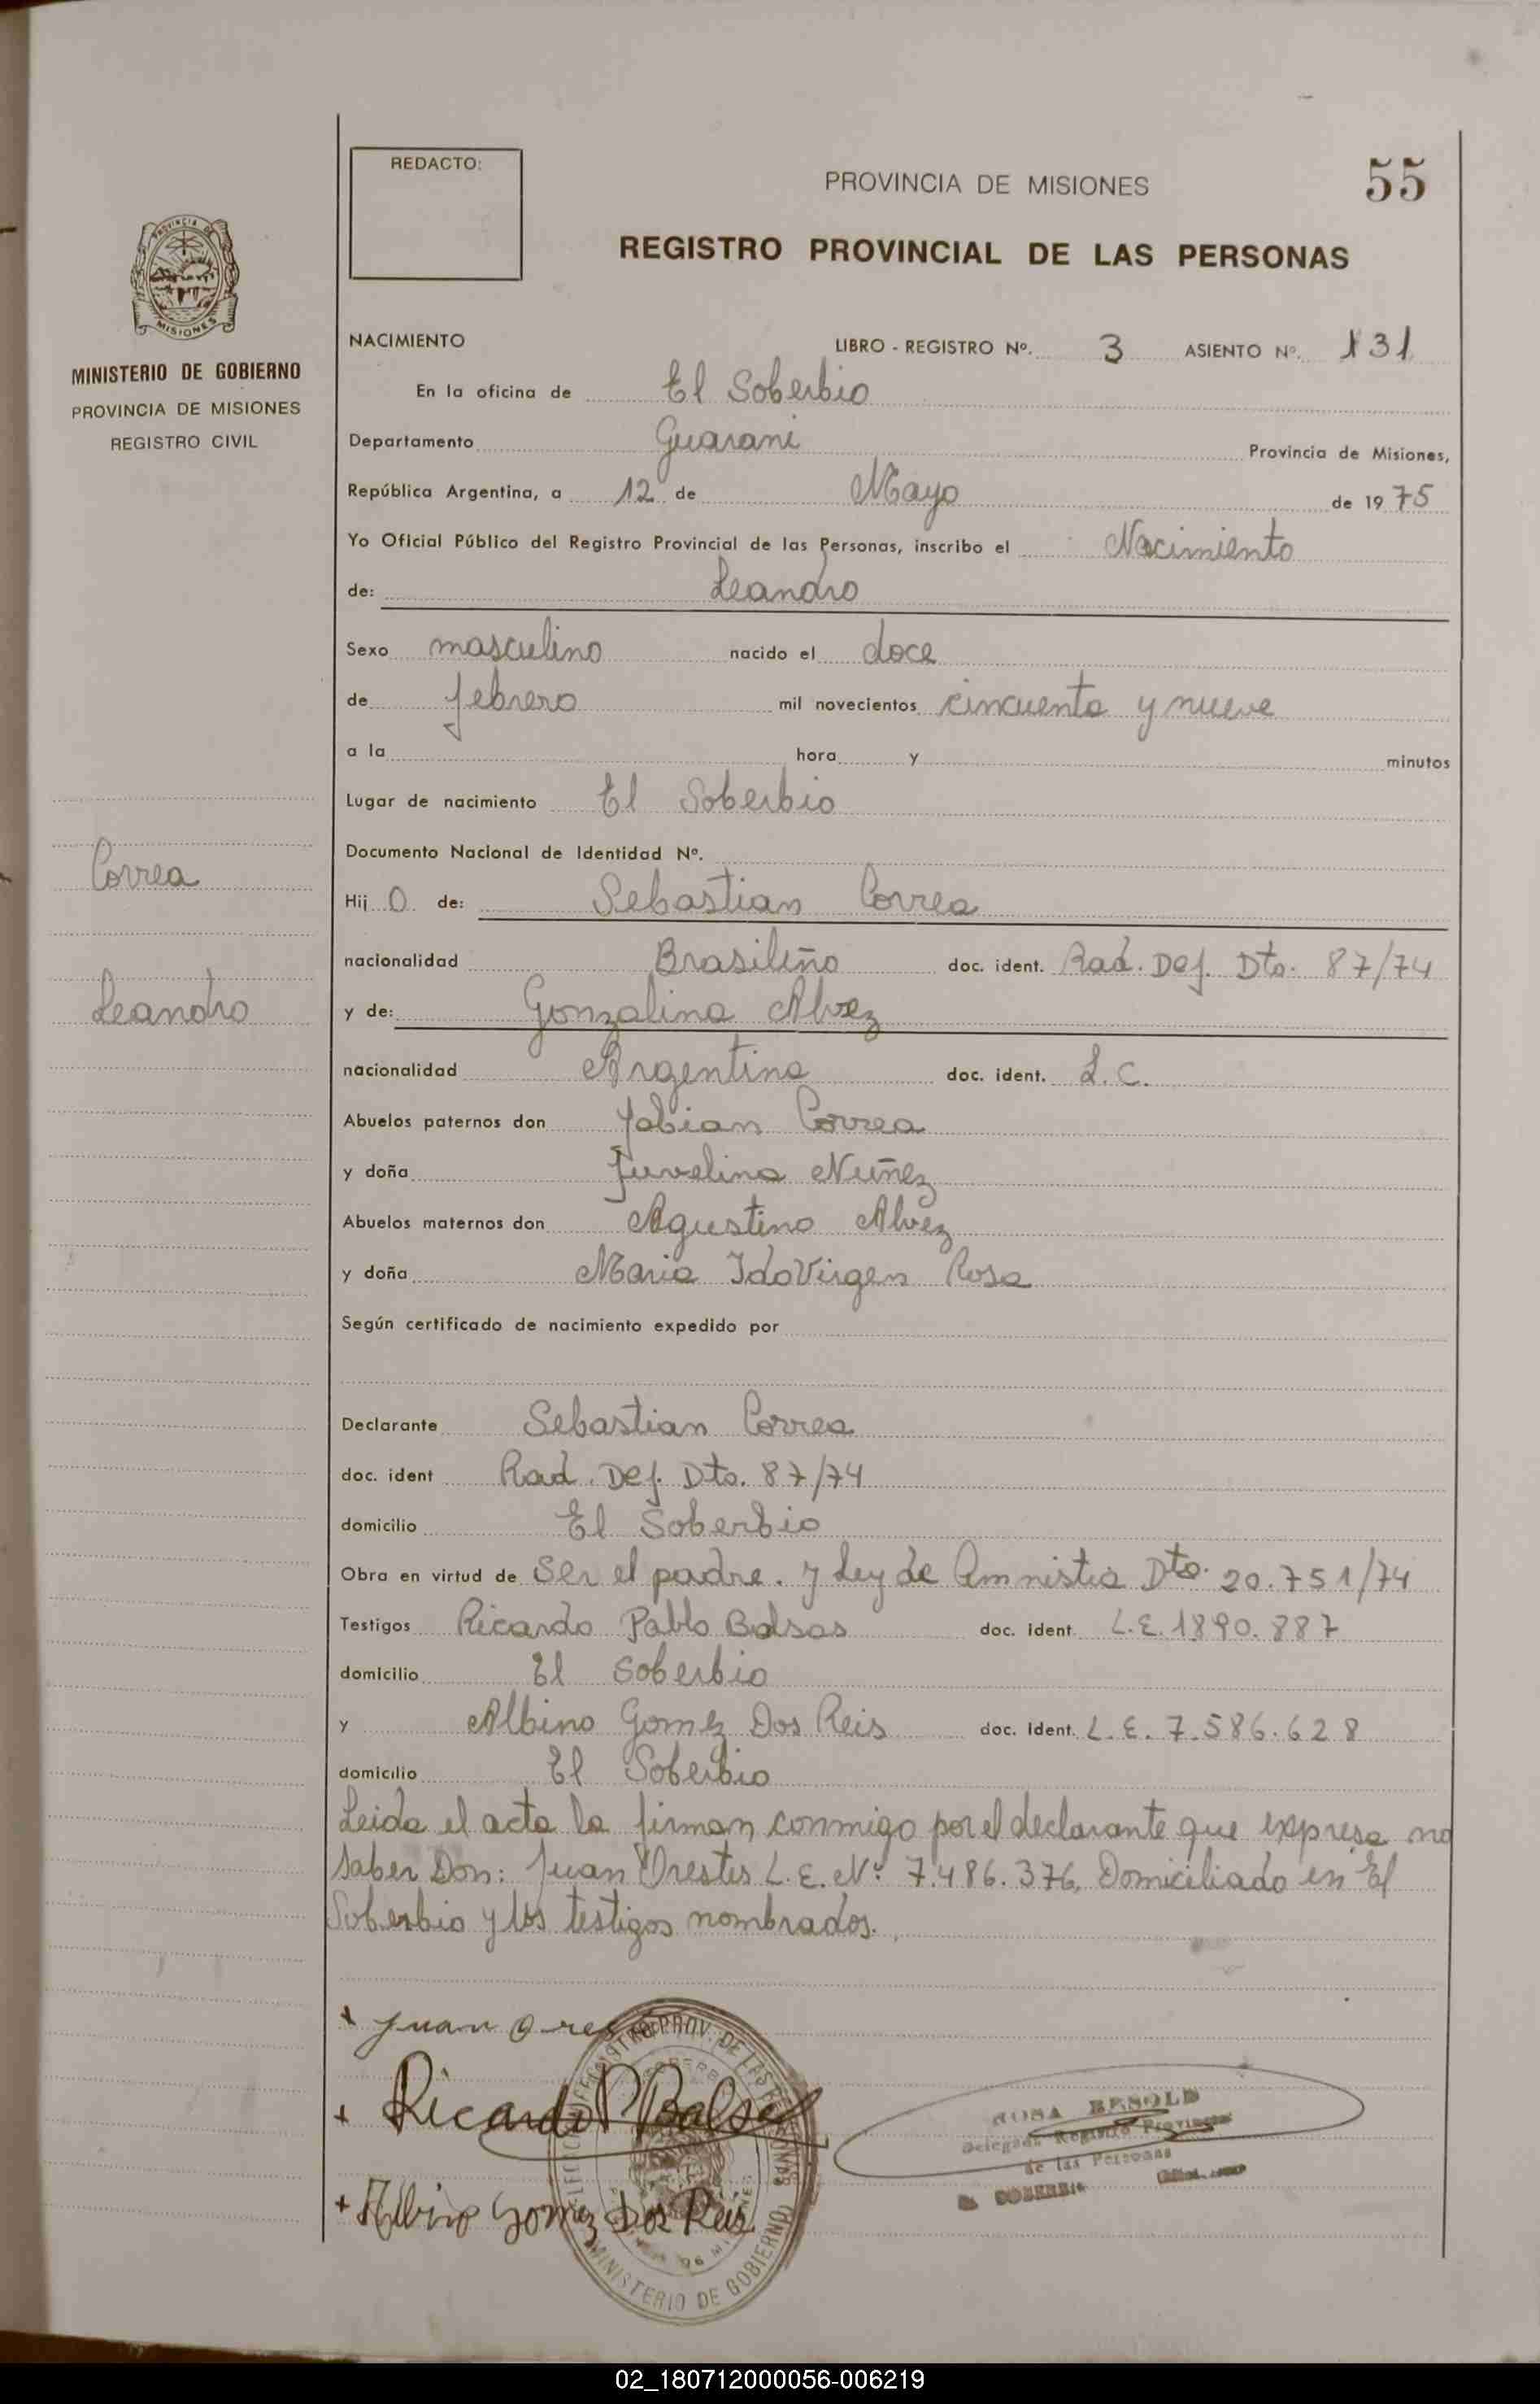 REDACTO:
PROVINCIA DE MISIONES
55
REGISTRO PROVINCIAL DE LAS PERSONAS
PROVINCIA DE
MISIONES
MINISTERIO DE GOBIERNO
PROVINCIA DE MISIONES
REGISTRO CIVIL
NACIMIENTO LIBRO - REGISTRO Nº. 3 ASIENTO Nº. 131
En la oficina de El Soberbio
Departamento Guarani Provincia de Misiones,
República Argentina, a 12 de Mayo de 1975
Yo Oficial Público del Registro Provincial de las Personas, inscribo el Nacimiento
de: Leandro
Sexo masculino nacido el doce
de febrero mil novecientos cincuenta y nueve
a la hora y minutos
Lugar de nacimiento El Soberbio
Documento Nacional de Identidad Nº.
Correa
Hij O de: Sebastian Correa
nacionalidad Brasileño doc. ident. Rad. Def. Dto. 87/74
Leandro
y de: Gonzalina Alvez
nacionalidad Argentina doc. ident. L.C.
Abuelos paternos don Fabian Correa
y doña Juvelina Nuñez
Abuelos maternos don Agustino Alvez
y doña Maria IdaVirgen Rosa
Según certificado de nacimiento expedido por
Declarante Sebastian Correa
doc. ident Rad. Def. Dto. 87/74
domicilio El Soberbio
Obra en virtud de Ser el padre. y Ley de Amnistia Dto. 20.751/74
Testigos Ricardo Pablo Balsas doc. ident. L.E. 1890.887
domicilio El Soberbio
y Albino Gomez Dos Reis doc. ident. L.E. 7.586.628
domicilio El Soberbio
Leida el acta la firman conmigo por el declarante que expresa no
saber Don: Juan Orestes L.E. Nº 7.486.376, Domiciliado en El
Soberbio y los testigos nombrados.
+ Juan
+ Ricardo P Balsa
+ Albino Gomez Dos Reis
REGISTRO PROV. DE LAS PERSONAS
MINISTERIO DE GOBIERNO
ROSA BESOLD
Delegada Registro Provincial
de las Personas
EL SOBERBIO
02_180712000056-006219